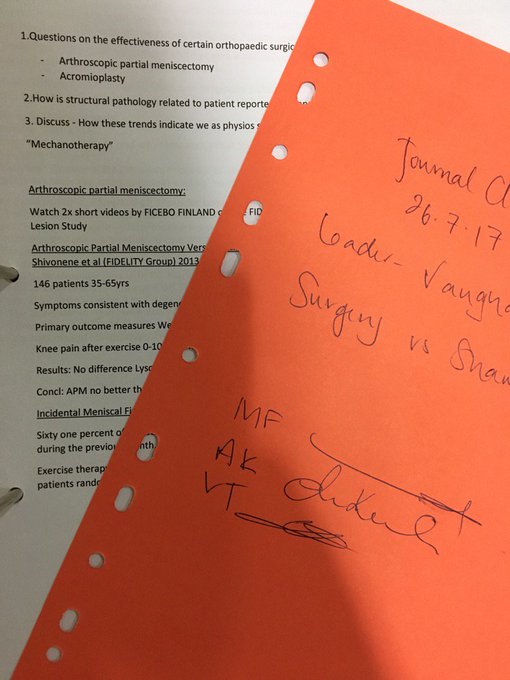 1.Questions on the effectiveness of certain orthopaedic surgic
- Arthroscopic partial meniscectomy
- Acromioplasty
2.How is structural pathology related to patient reporte
3. Discuss - How these trends indicate we as physios s
"Mechanotherapy"
Arthroscopic partial meniscectomy:
Watch 2x short videos by FICEBO FINLAND FID
Lesion Study
Arthroscopic Partial Meniscectomy Vers
Shivonene et al (FIDELITY Group) 2013
146 patients 35-65yrs
Symptoms consistent with degene
Primary outcome measures We
Knee pain after exercise 0-10
Results: No difference Lys
Concl: APM no better th
Incidental Meniscal Fi
Sixty one percent o
during the previou nth
Exercise therap
patients rand
Journal Cl
26.7.17
Leader- Vaugha
Surgery vs Sham
MF
AK
VT